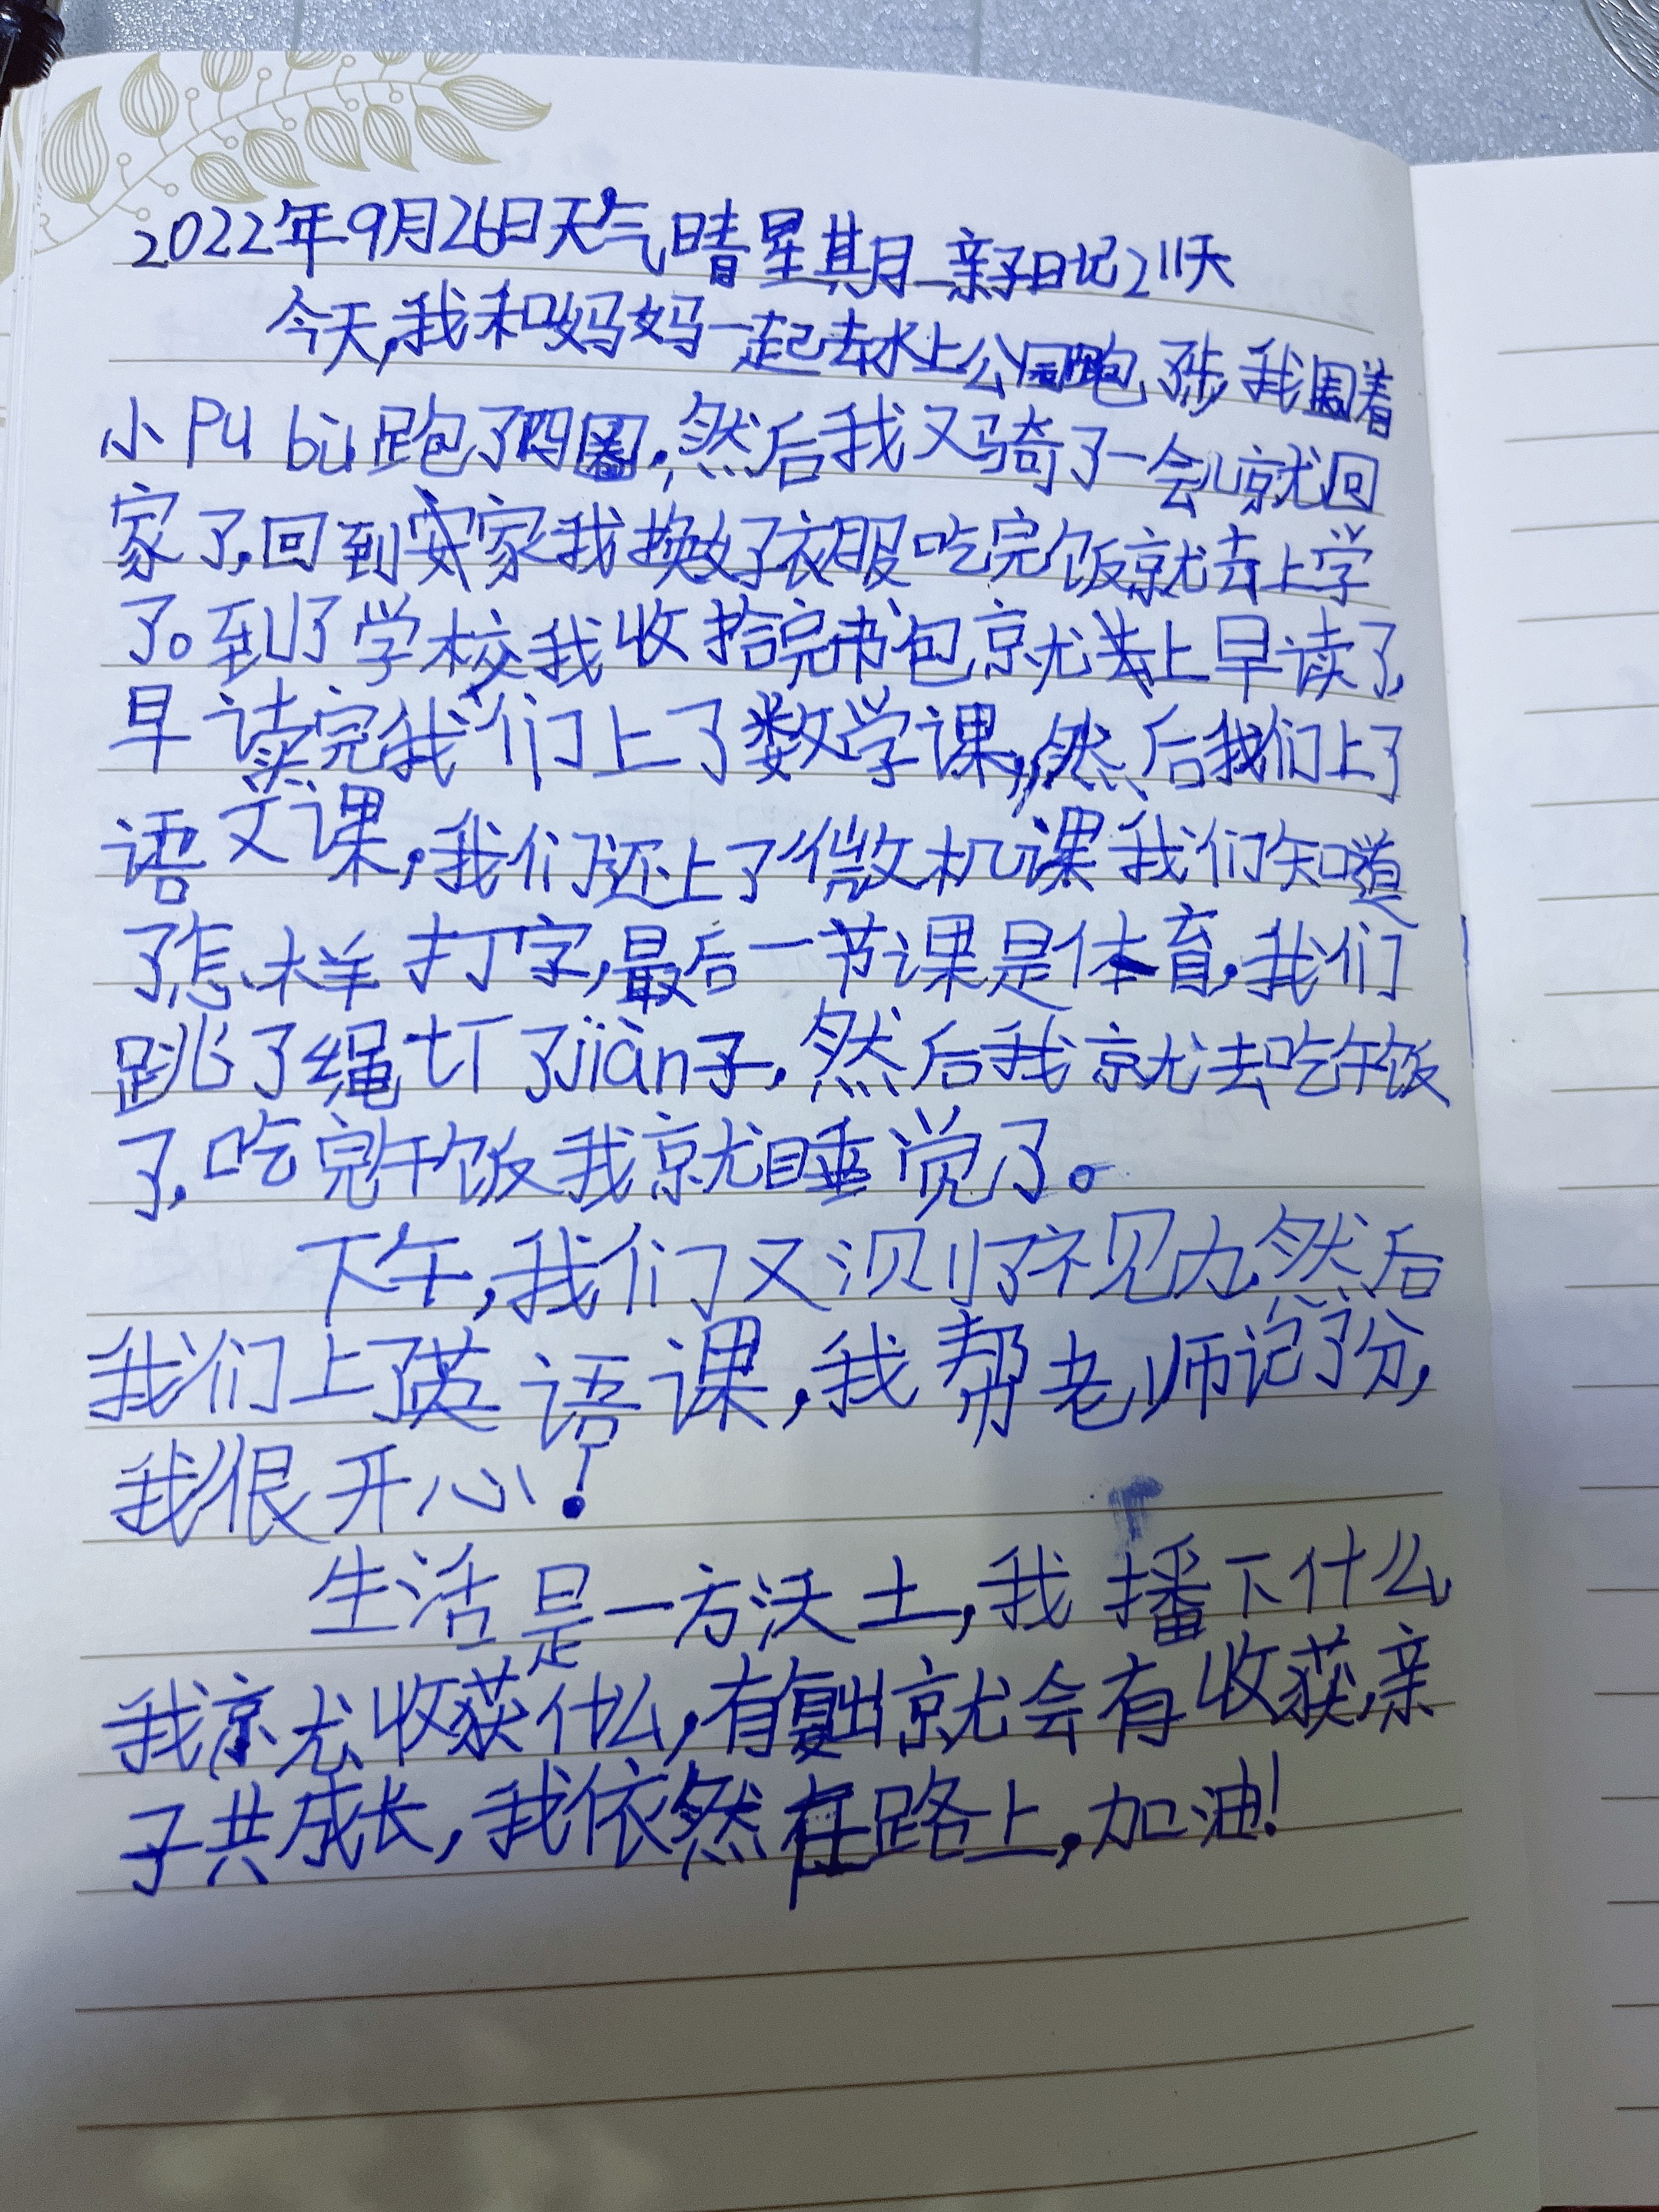 2022年9月26日天气晴星期一亲子日记211天
今天,我和妈妈一起去水上公园跑了步,我围着
小Pu bù跑了四圈,然后我又骑了一会儿就回
家了,回到家我换好了衣服吃完饭就去上学
了。到了学校我收拾完书包,就去上早读了,
早读完我们上了数学课,然后我们上了
语文课,我们还上了微机课我们知道
了怎么样打字,最后一节课是体育,我们
跳了绳打了jiàn子,然后我就去吃午饭
了,吃完午饭我就睡觉了。
下午,我们又测了视力,然后
我们上了英语课,我帮老师记了分,
我很开心!
生活是一方沃土,我播下什么
我就收获什么,有付出就会有收获,亲
子共成长,我依然在路上,加油!